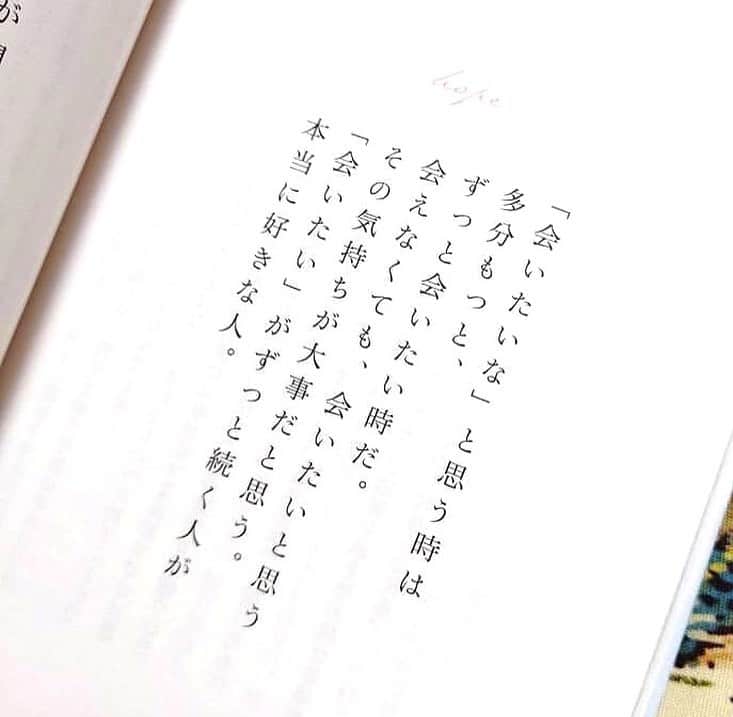 hope
「会いたいな」と思う時は
多分もっと、
ずっと会いたい時だ。
会えなくても、会いたいと思う
その気持ちが大事だと思う。
「会いたい」がずっと続く人が
本当に好きな人。
が